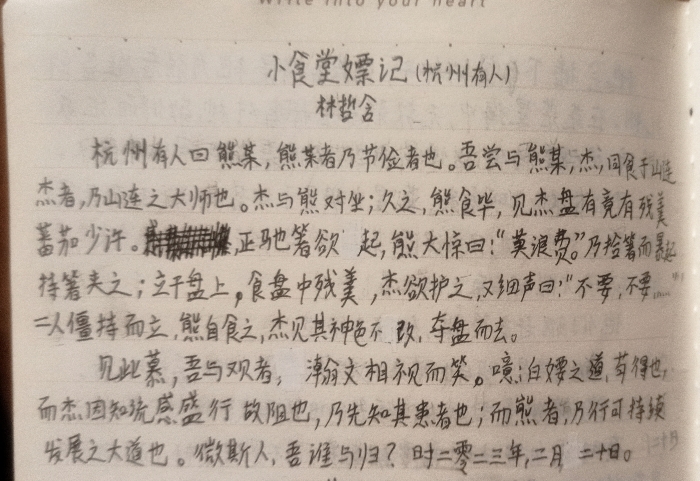 Write into your heart
小食堂嫖记（杭州有人）
林哲含
杭州有人曰熊某，熊某者乃节俭者也。吾尝与熊某，杰，同食于山连
杰者，乃山连之大师也。杰与熊对坐；久之，熊食毕，见杰盘有竟有残羹
蕃茄少许。正驰箸欲起，熊大惊曰：“莫浪费。”乃拾箸而暴起
持箸夹之；立于盘上，食盘中残羹，杰欲护之，又细声曰：“不要，不要……”
二人僵持而立，熊自食之，杰见其神色不改，夺盘而去。
见此慕，吾与观者，瀚翁文相视而笑。噫：白嫖之道，苟得也，
而杰因知流感盛行故阻也，乃先知其患者也；而熊者，乃行可持续
发展之大道也。微斯人，吾谁与归？时二零二三年，二月二十日。